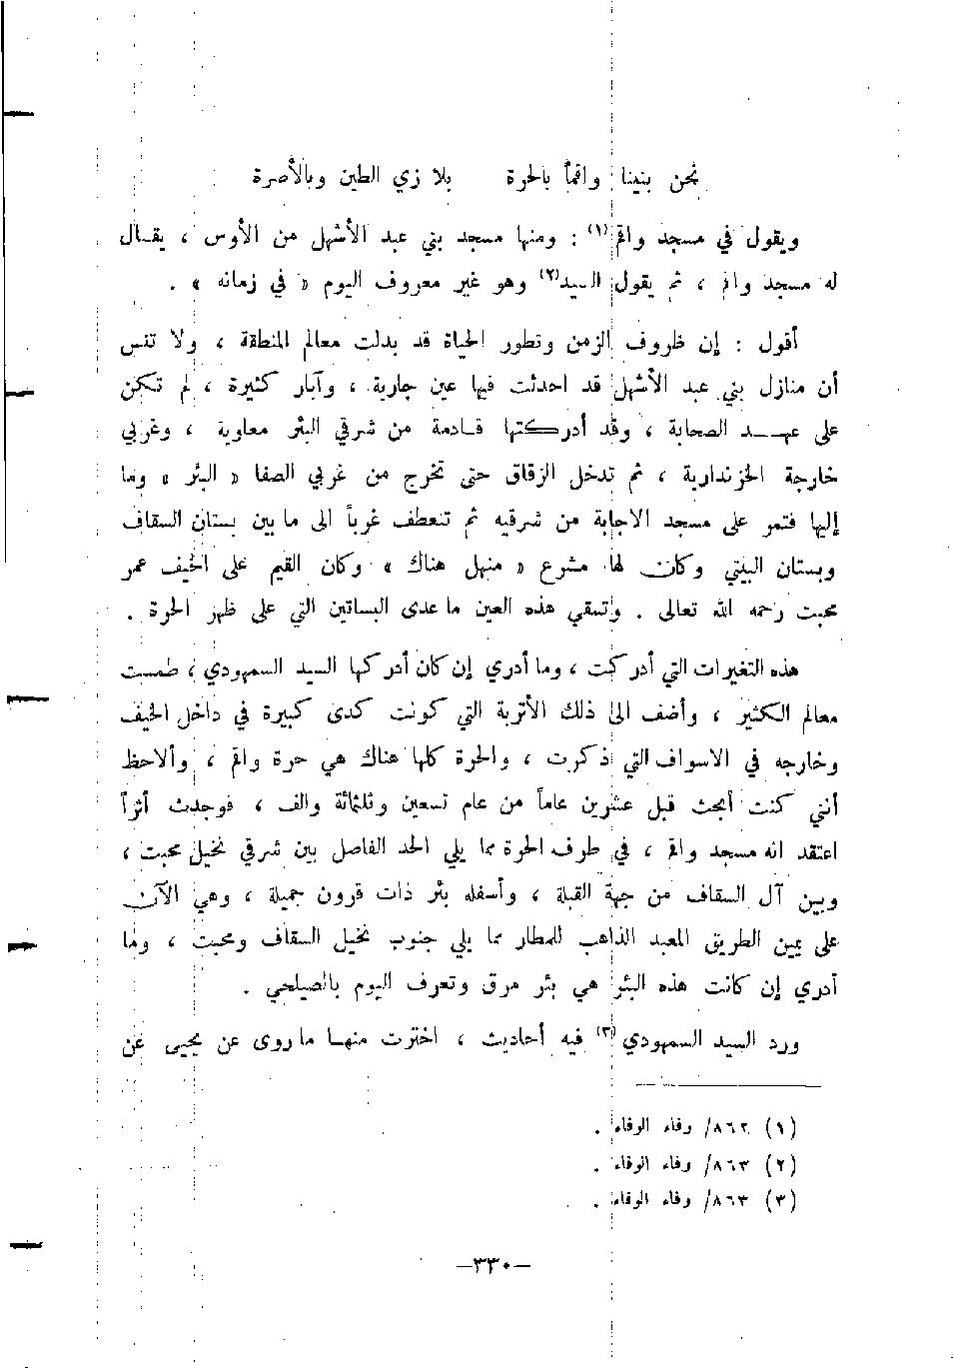 نحن بنينا واقماً بالحرة بلا زي الطين وبالأصرة
ويقول في مسجد واقم (١) : ومنها مسجد بني عبد الأشهل من الأوس ، يقــال
له مسجد واقم ، ثم يقول السيد (٢) وهو غير معروف اليوم « في زمانه » .
أقول : إن ظروف الزمن وتطور الحياة قد بدلت معالم المنطقة ، ولا تنس
أن منازل بني عبد الأشهل قد احدثت فيها عين جارية ، وآبار كثيرة ، لم تكن
على عهــد الصحابة ، وقد أدركتها قــادمة من شرقي البئر معاوية ، وغربي
خارجة الخزندارية ، ثم تدخل الزقاق حتى تخرج من غربي الصفا « البئر » وما
إليها فتمر على مسجد الاجابة من شرقيه ثم تنعطف غرباً الى ما بين بستان السقاف
وبستان البيتي وكان لها مشرع « منهل هناك » وكان القيم على الخيف عمر
محبت رحمه الله تعالى . وتسقي هذه العين ما عدى البساتين التي على ظهر الحرة .
هذه التغيرات التي أدركت ، وما أدري إن كان أدركها السيد السمهودي ، طمست
معالم الكثير ، وأضف الى ذلك الأتربة التي كونت كدى كبيرة في داخل الخيف
وخارجه في الاسواف التي ذكرت ، والحرة كلها هناك هي حرة واقم ، وألاحظ
أنني كنت أبحث قبل عشرين عاماً من عام تسعين وثلثمائة والف ، فوجدت أثراً
اعتقد انه مسجد واقم ، في طرف الحرة مما يلي الحد الفاصل بين شرقي نخيل محبت ،
وبين آل السقاف من جهة القبلة ، وأسفله بئر ذات قرون جميلة ، وهي الآن
على يمين الطريق المعبد الذاهب للمطار مما يلي جنوب نخيل السقاف ومحبت ، وما
أدري إن كانت هذه البئر هي بئر مرق وتعرف اليوم بالصيلحي .
ورد السيد السمهودي (٣) فيه أحاديث ، اخترت منهــا ما روى عن يحيى عن
(١) ٨٦٢/ وفاء الوفاء .
(٢) ٨٦٣/ وفاء الوفاء .
(٣) ٨٦٣/ وفاء الوفاء .
—٣٣٠—